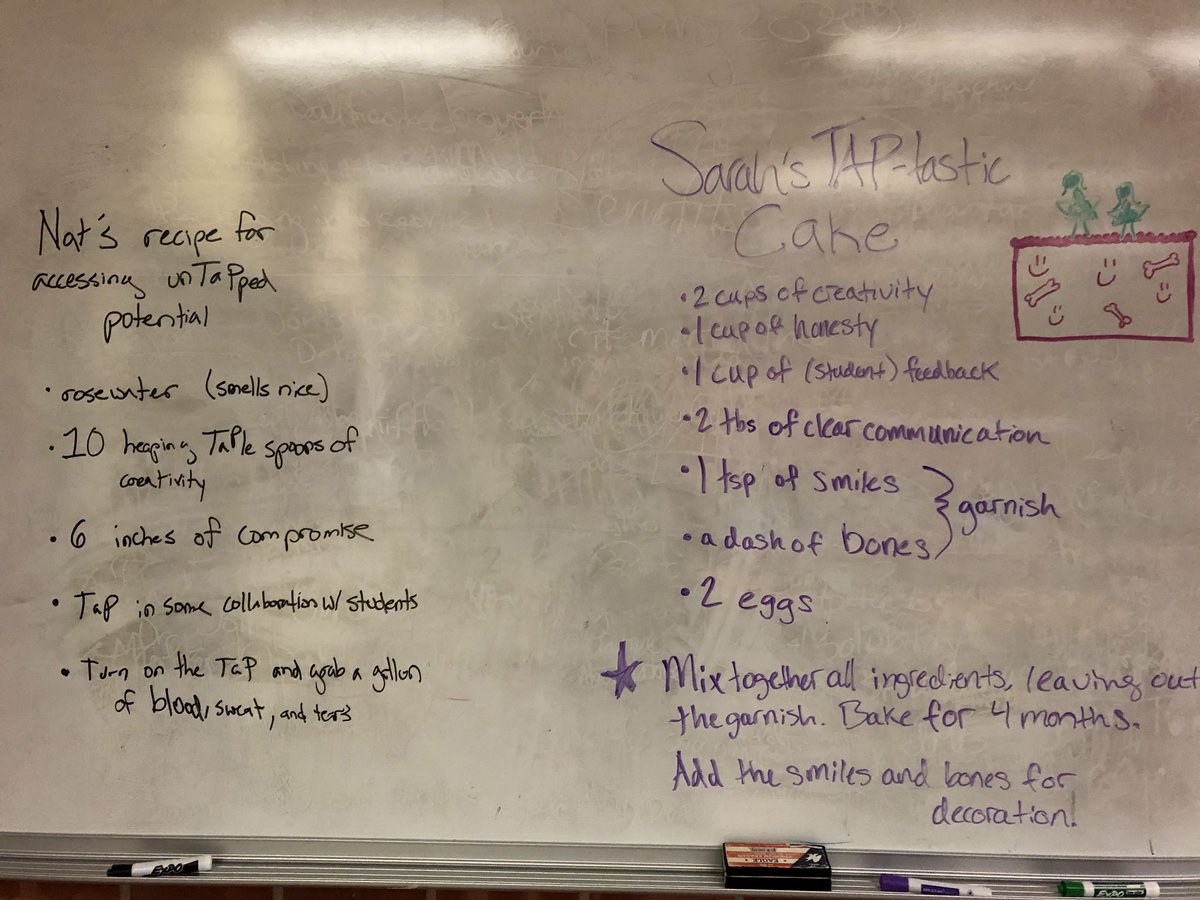 Nat's recipe for
accessing unTaPped
potential
• rosewater (smells nice)
• 10 heaping TaPle spoons of
creativity
• 6 inches of compromise
• TaP in some collaboration w/ students
• Turn on the TaP and grab a gallon
of blood, sweat, and tears
Sarah's TAP-tastic
Cake
• 2 cups of creativity
• 1 cup of honesty
• 1 cup of (student) feedback
• 2 tbs of clear communication
• 1 tsp of smiles
• a dash of bones
garnish
• 2 eggs
★ Mix together all ingredients, leaving out
the garnish. Bake for 4 months.
Add the smiles and bones for
decoration!
EXPO
EAGLE
EXPO